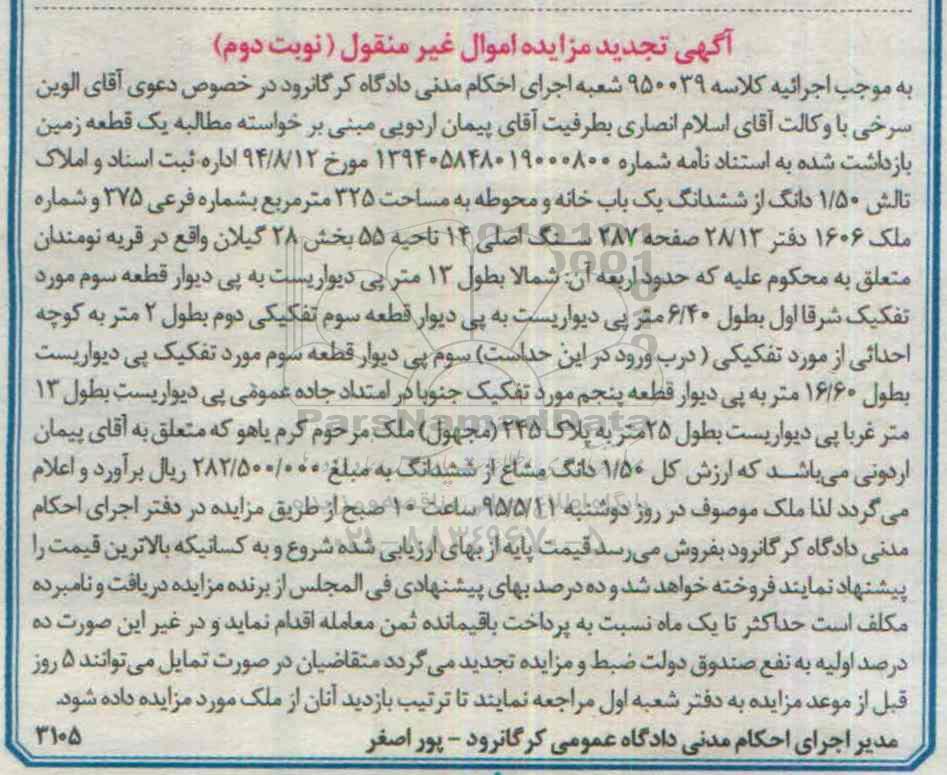 آگهی تجدید مزایده اموال غیر منقول (نوبت دوم)
به موجب اجرائیه کلاسه ۹۵۰۰۳۹ شعبه اجرای احکام مدنی دادگاه کرگانرود در خصوص دعوی آقای الوین
سرخی با وکالت آقای اسلام انصاری بطرفیت آقای پیمان اردویی مبنی بر خواسته مطالبه یک قطعه زمین
بازداشت شده به استناد نامه شماره ۱۳۹۴۰۵۸۴۸۰۱۹۰۰۰۸۰۰ مورخ ۹۴/۸/۱۲ اداره ثبت اسناد و املاک
تالش ۱/۵۰ دانگ از ششدانگ یک باب خانه و محوطه به مساحت ۳۲۵ مترمربع بشماره فرعی ۳۷۵ و شماره
ملک ۱۶۰۶ دفتر ۲۸/۱۳ صفحه ۲۸۷ سنگ اصلی ۱۴ ناحیه ۵۵ بخش ۲۸ گیلان واقع در قریه نومندان
متعلق به محکوم علیه که حدود اربعه آن: شمالا بطول ۱۳ متر پی دیواریست به پی دیوار قطعه سوم مورد
تفکیک شرقا اول بطول ۶/۴۰ متر پی دیواریست به پی دیوار قطعه سوم تفکیکی دوم بطول ۲ متر به کوچه
احداثی از مورد تفکیکی (درب ورود در این حداست) سوم پی دیوار قطعه سوم مورد تفکیک پی دیواریست
بطول ۱۶/۶۰ متر به پی دیوار قطعه پنجم مورد تفکیک جنوبا در امتداد جاده عمومی پی دیواریست بطول ۱۳
متر غربا پی دیواریست بطول ۲۵متر به پلاک ۲۴۵ (مجهول) ملک مرحوم کرم یاهو که متعلق به آقای پیمان
اردونی می‌باشد که ارزش کل ۱/۵۰ دانگ مشاع از ششدانگ به مبلغ ۲۸۲/۵۰۰/۰۰۰ ریال برآورد و اعلام
می گردد لذا ملک موصوف در روز دوشنبه ۹۵/۵/۱۱ ساعت ۱۰ صبح از طریق مزایده در دفتر اجرای احکام
مدنی دادگاه کرگانرود بفروش می‌رسد قیمت پایه از بهای ارزیابی شده شروع و به کسانیکه بالاترین قیمت را
پیشنهاد نمایند فروخته خواهد شد و ده درصد بهای پیشنهادی فی المجلس از برنده مزایده دریافت و نامبرده
مکلف است حداکثر تا یک ماه نسبت به پرداخت باقیمانده ثمن معامله اقدام نماید و در غیر این صورت ده
درصد اولیه به نفع صندوق دولت ضبط و مزایده تجدید می گردد متقاضیان در صورت تمایل می‌توانند ۵ روز
قبل از موعد مزایده به دفتر شعبه اول مراجعه نمایند تا ترتیب بازدید آنان از ملک مورد مزایده داده شود.
مدیر اجرای احکام مدنی دادگاه عمومی کرگانرود - پور اصغر ۳۱۰۵
ParsNamadData
۰۲۱-۸۸۳۴۹۶۷۰-۵